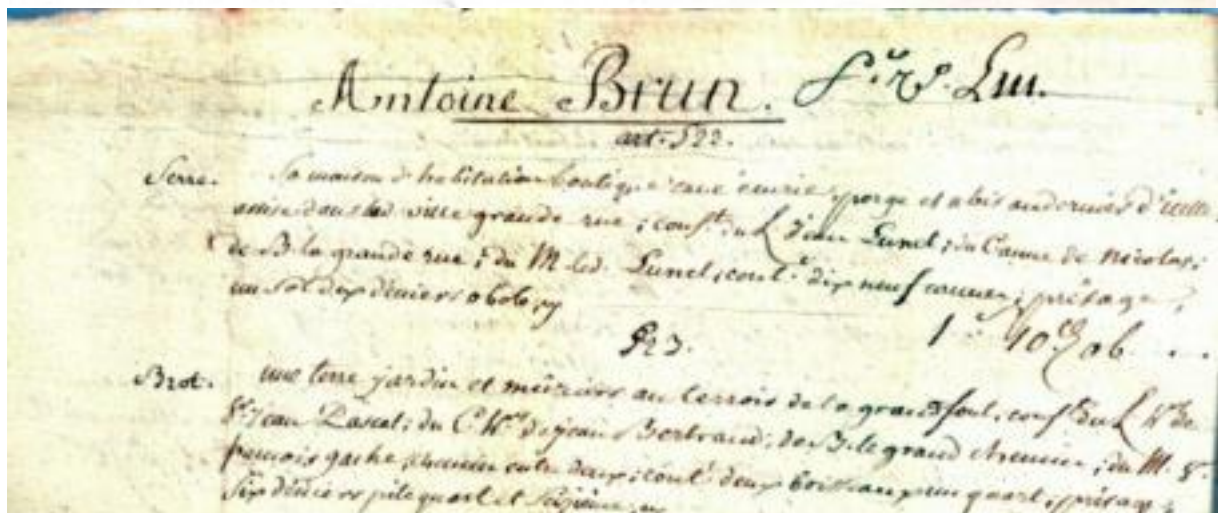 Antoine Brun.
art. 522.
Serre. Sa maison d'habitation boutique cave écurie porge et abis au dernier d'icelle
assise dans lad ville grande rue ; conf.t du L Jean Lunel ; du Canne de nicolas ;
de B la grande rue ; du M led. Lunel, cont.t dix neuf cannes ; présage
un sol dix deniers obole, cy
1 10 ob
523.
Brot. une terre jardin et mûriers au terroir de la grand font, conf.t du L
Jean Pascal ; du C de jean Bertrand ; de B. le grand chemin ; du M.
françois gache, chemin entre deux ; cont.t deux boisseaux un quart, présage
six deniers pite quart et seizième, cy